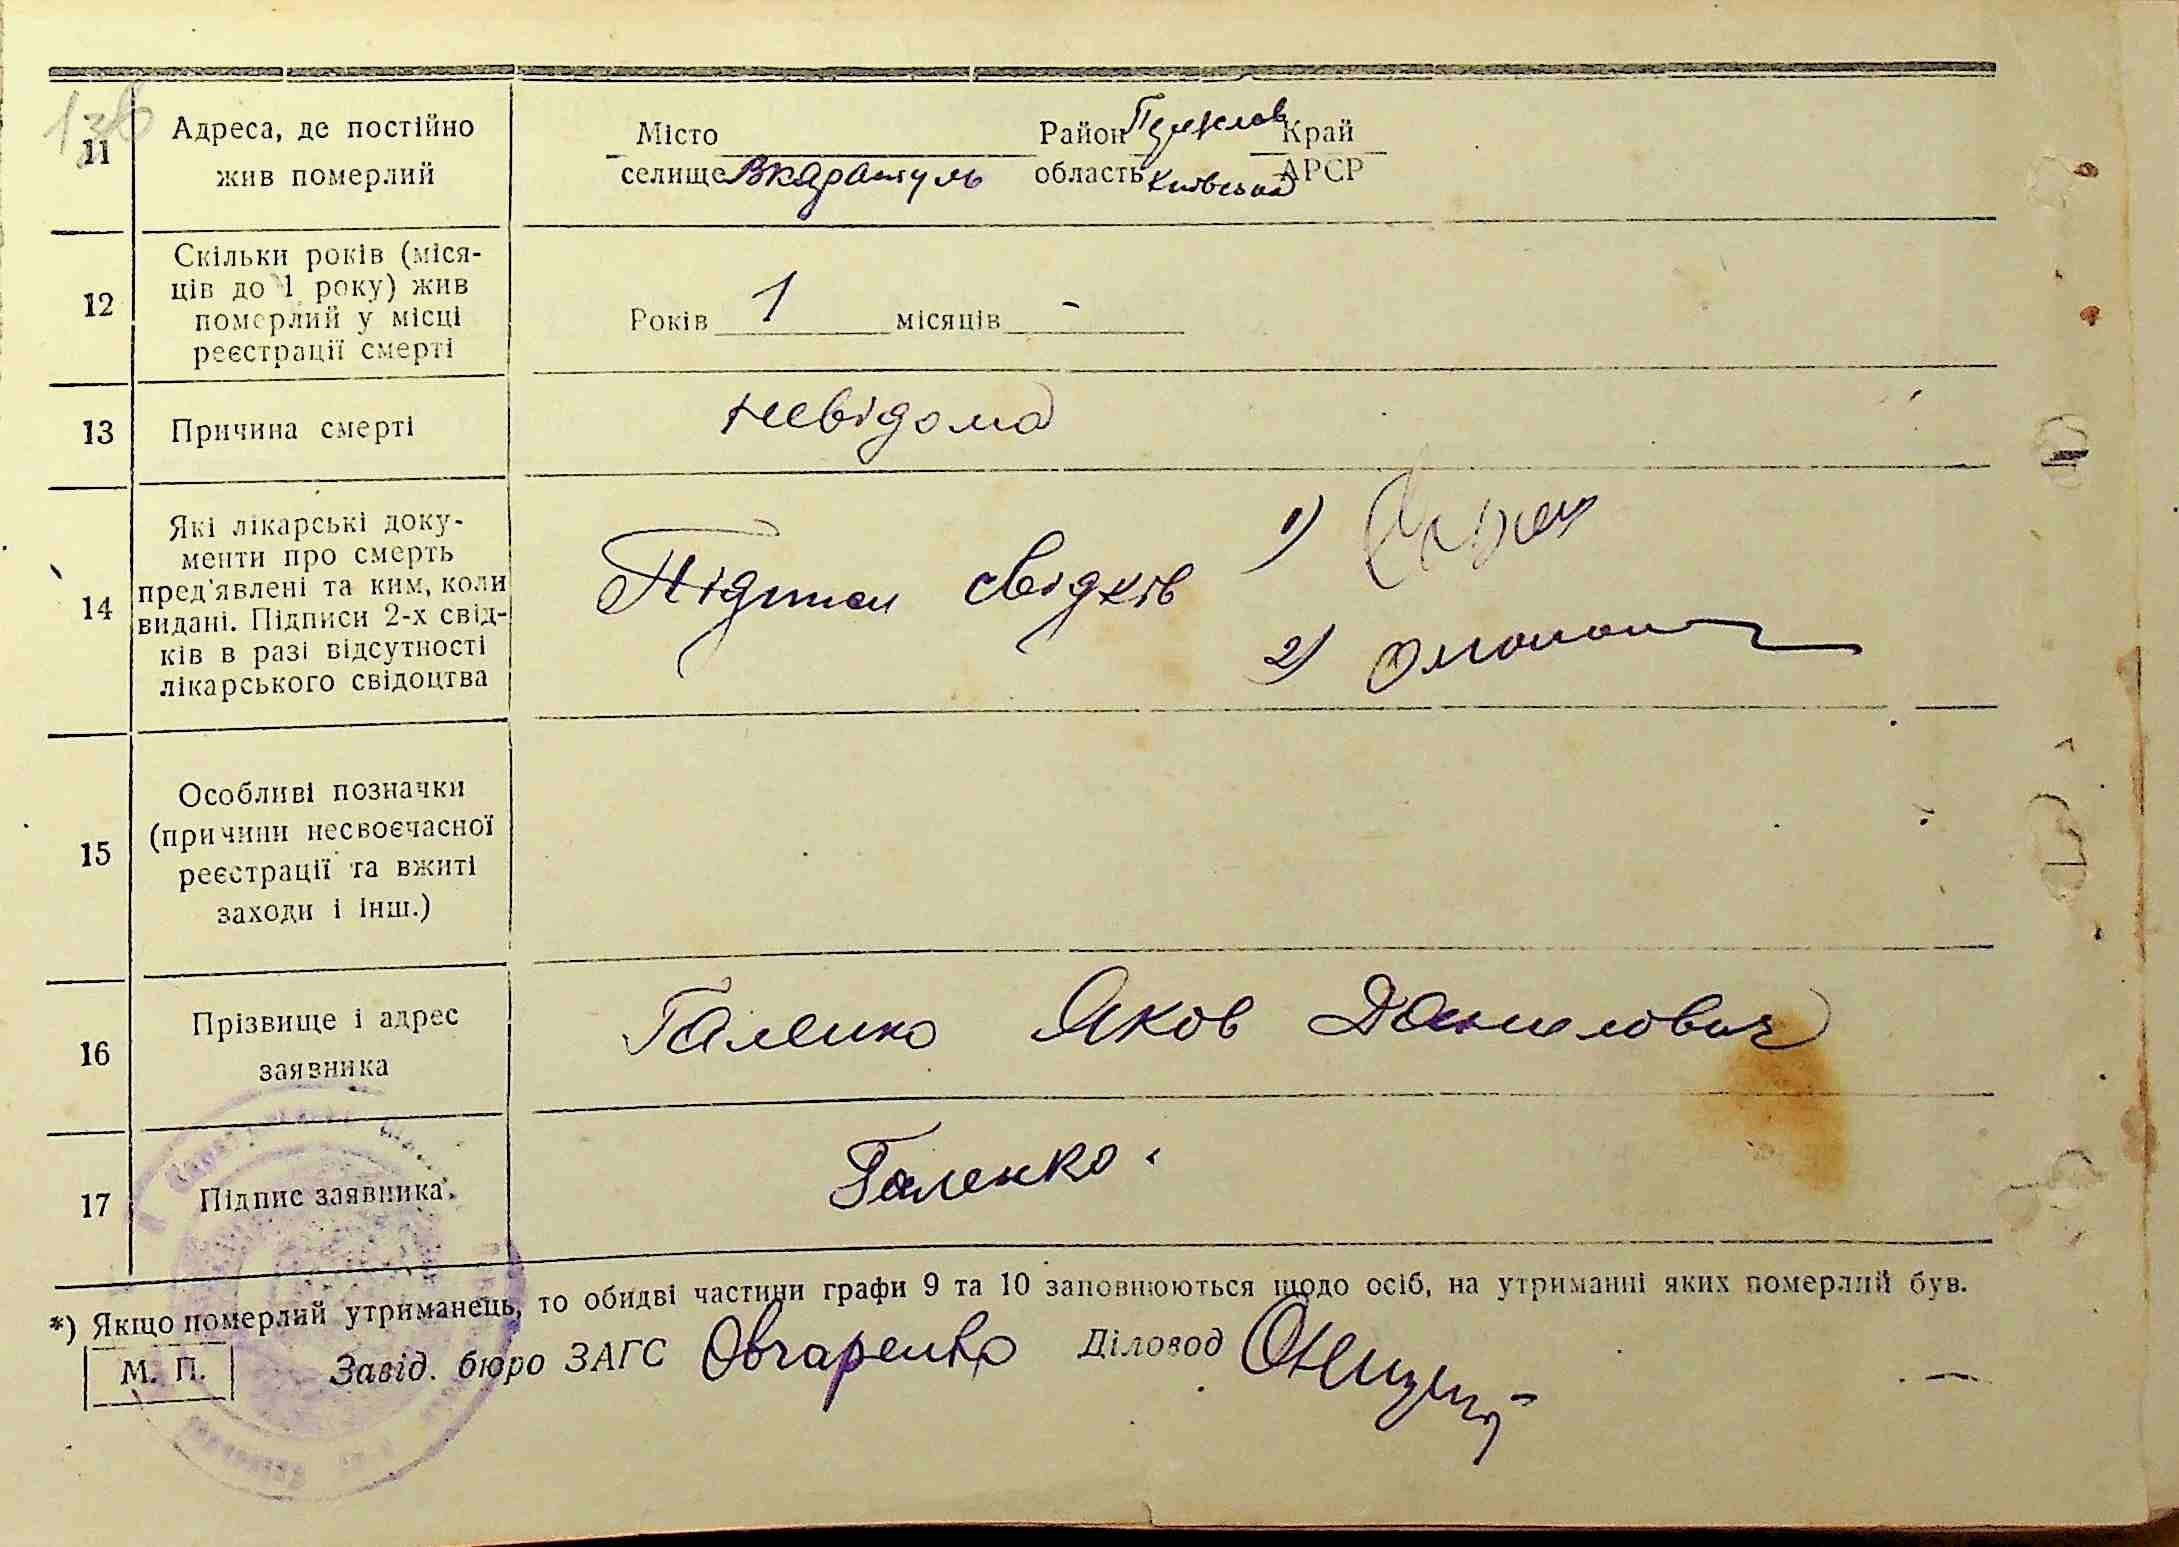 138
11
Адреса, де постійно
жив померлий
Місто Район Переяслав Край
селище Вкаратуль область Київська АРСР
12
Скільки років (міся-
ців до 1 року) жив
померлий у місці
реєстрації смерті
Років 1 місяців -
13
Причина смерті
невідома
14
Які лікарські доку-
менти про смерть
пред'явлені та ким, коли
видані. Підписи 2-х свід-
ків в разі відсутності
лікарського свідоцтва
Підписи свідків 1)
2)
15
Особливі позначки
(причини несвоєчасної
реєстрації та вжиті
заходи і інш.)
16
Прізвище і адрес
заявника
Галенко Яков Данилович
17
Підпис заявника.
Галенко.
*) Якщо померлий утриманець, то обидві частини графи 9 та 10 заповнюються щодо осіб, на утриманні яких померлий був.
М. П. Завід. бюро ЗАГС Овчаренко Діловод